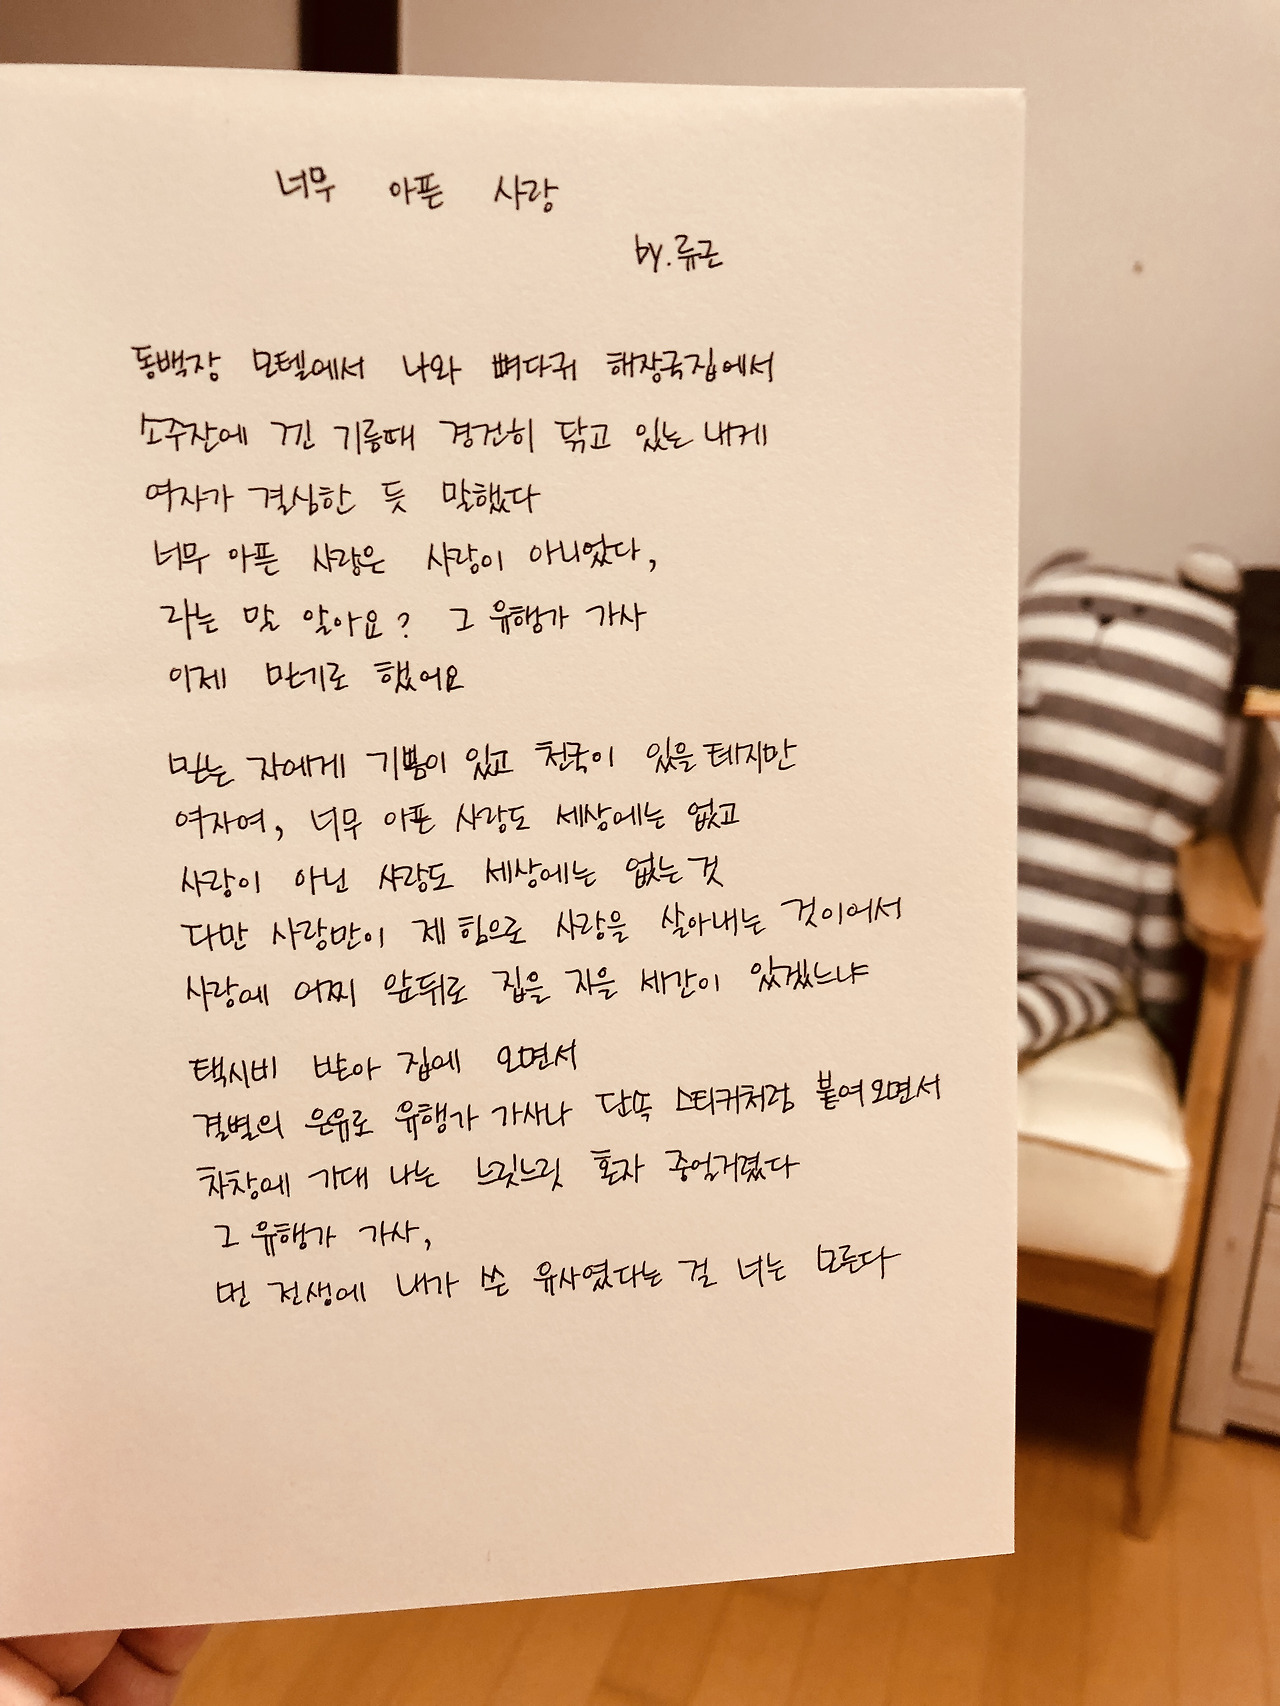 너무 아픈 사랑
by. 류근
동백장 모텔에서 나와 뼈다귀 해장국집에서
소주잔에 낀 기름때 경건히 닦고 있는 내게
여자가 결심한 듯 말했다
너무 아픈 사랑은 사랑이 아니었다,
라는 말 알아요? 그 유행가 가사
이제 믿기로 했어요
믿는 자에게 기쁨이 있고 천국이 있을 테지만
여자여, 너무 아픈 사랑도 세상에는 없고
사랑이 아닌 사랑도 세상에는 없는 것
다만 사랑만이 제 힘으로 사랑을 살아내는 것이어서
사랑에 어찌 앞뒤로 집을 지을 세간이 있겠느냐
택시비 받아 집에 오면서
결별의 은유로 유행가 가사나 단속 스티커처럼 붙여 오면서
차창에 기대 나는 느릿느릿 혼자 중얼거렸다
그 유행가 가사,
먼 전생에 내가 쓴 유서였다는 걸 너는 모른다